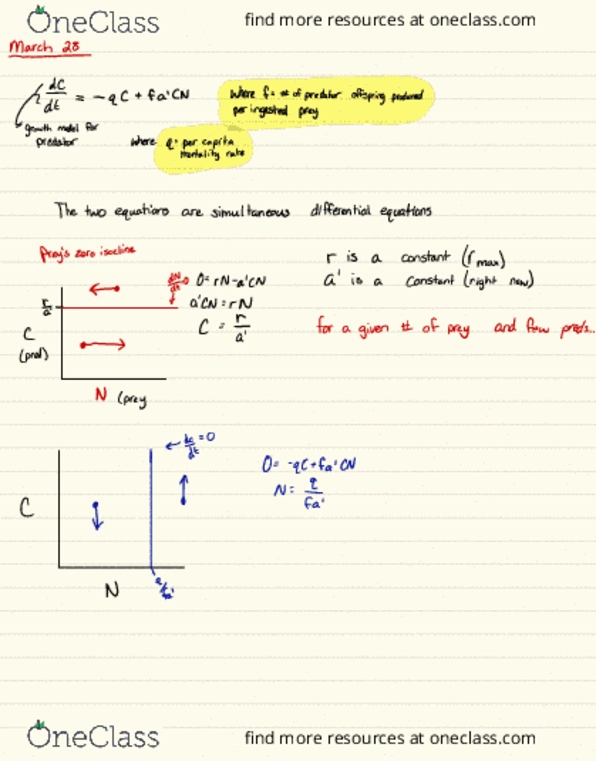 OneClass
find more resources at oneclass.com
March 28
dC/dt = -qC + fa'CN
where f = # of predator offspring produced
per ingested prey
growth model for
predator
where q = per capita
mortality rate
The two equations are simultaneous differential equations
Prey's zero isocline
r is a constant (rmax)
dN/dt = 0
0 = rN - a'CN
a' is a constant (right now)
r/a'
a'CN = rN
C = r/a'
for a given # of prey and few preds..
C
(pred)
N (prey
← dC/dt = 0
0 = -qC + fa'CN
N = q/fa'
C
N
q/fa'
OneClass
find more resources at oneclass.com